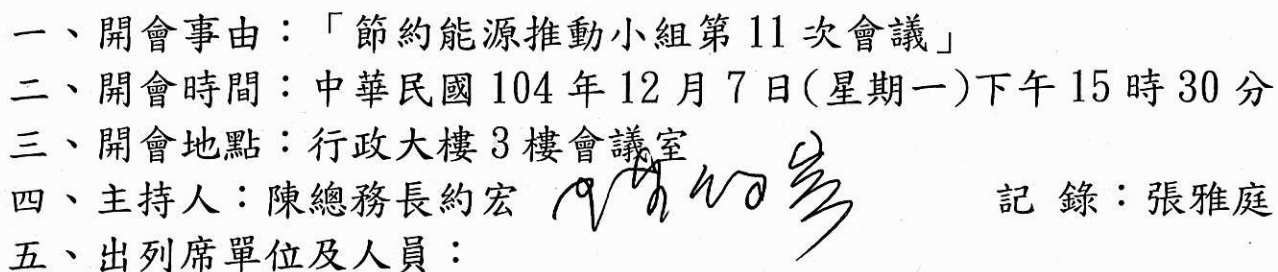 一、開會事由：「節約能源推動小組第 11 次會議」
二、開會時間：中華民國 104 年 12 月 7 日(星期一)下午 15 時 30 分
三、開會地點：行政大樓 3 樓會議室
四、主持人：陳總務長約宏 陳約宏 記 錄：張雅庭
五、出列席單位及人員：